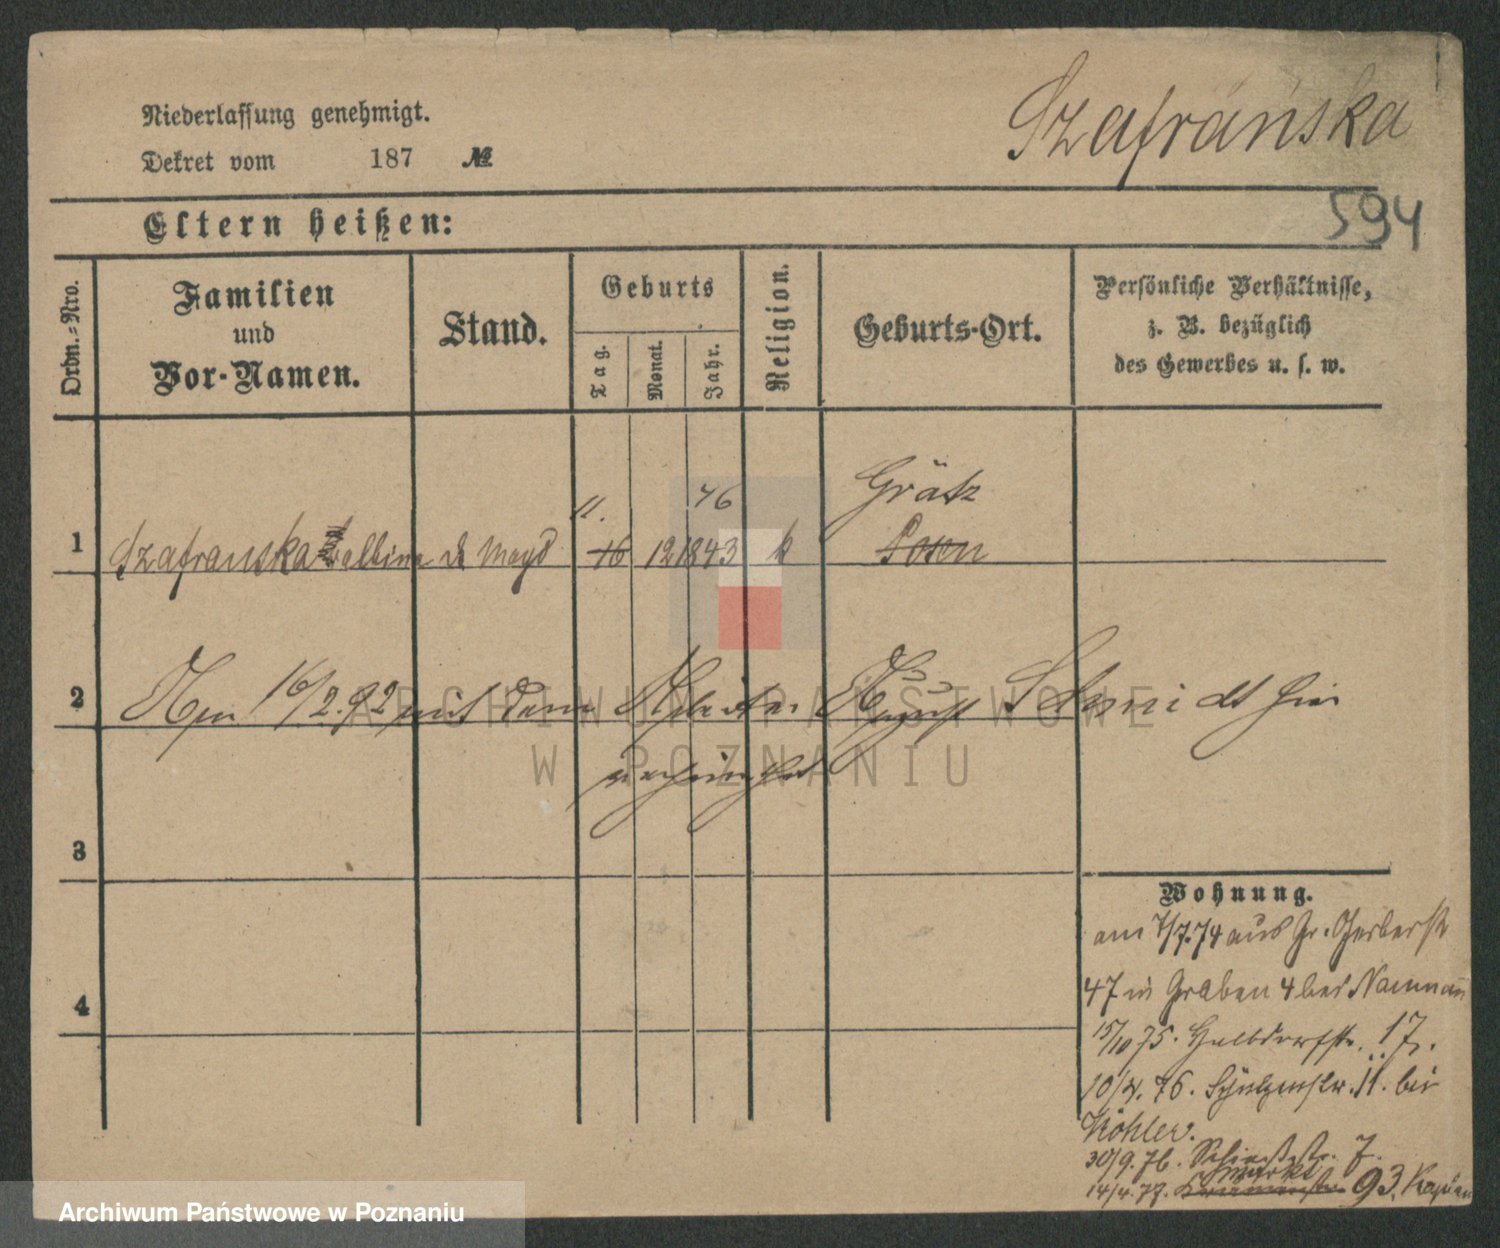 Szafrańska
Niederlassung genehmigt.
Dekret vom 187 №
594
Eltern heißen:
Ordn.=Nro.
Familien
und
Vor-Namen.
Stand.
Geburts
Tag.
Monat.
Jahr.
Religion.
Geburts-Ort.
Persönliche Verhältnisse,
z. B. bezüglich
des Gewerbes u. s. w.
11. 46 Grätz
1 Szafranska Balbina d. Magd 16 12 1843 k Posen
2 Am 16/2.92 mit dem Arbeiter August Schmidt hier
verheirathet
3
Wohnung.
am 7/7.74 aus Gr. Gerberstr
47 in Graben 4 bei Naumann
4
15/10 75. Halbdorfstr. 17.
10/4. 76. Schützenstr. 11. bei
Köhler.
30/9. 76. Schießstr. 7.
Markt
14/4. 77. 93. Kaplan
ARCHIWUM PAŃSTWOWE
W POZNANIU
Archiwum Państwowe w Poznaniu